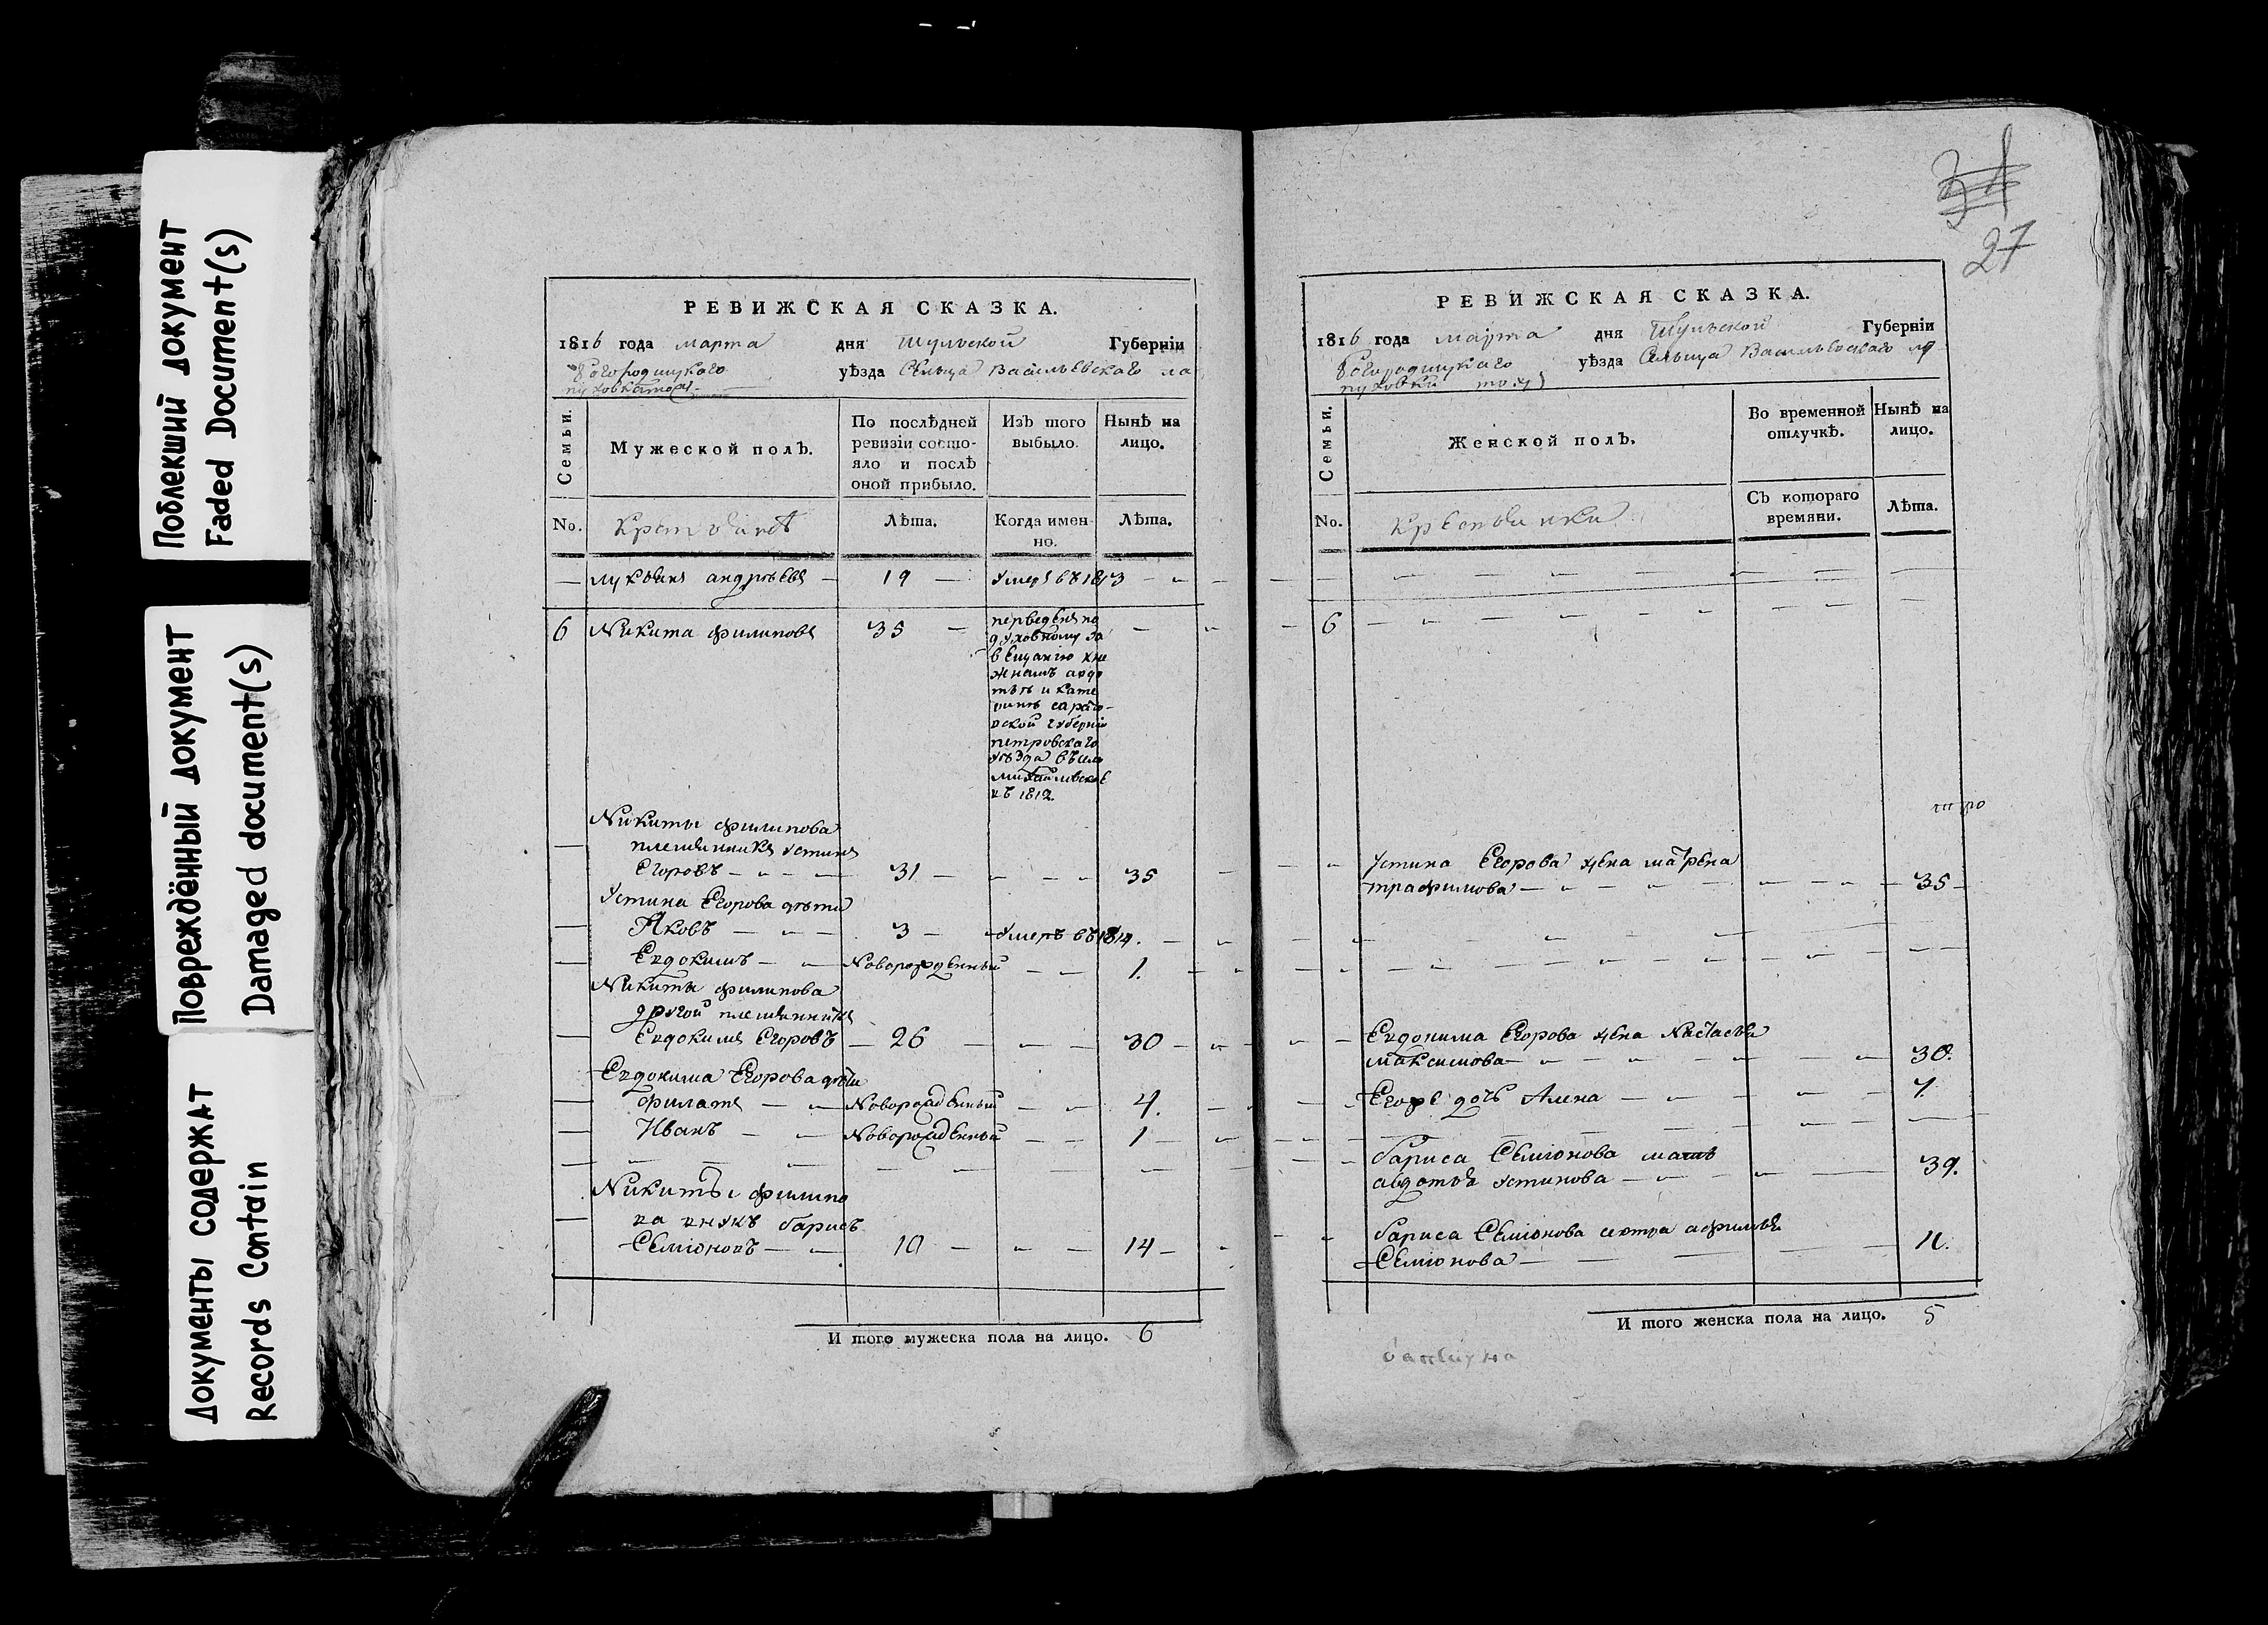 Поблекший документ
Faded Document(s)
Повреждённый документ
Damaged document(s)
Документы содержат
Records Contain
РЕВИЖСКАЯ СКАЗКА.
1816 года марта дня Тульской Губерніи
Богородицкаго уѣзда Сельца Васильевского ла
пуховка тожъ
Семьи.
Мужеской полъ.
По послѣдней
ревизіи состо-
яло и послѣ
оной прибыло.
Изъ того
выбыло.
Нынѣ на
лицо.
No.
Лѣта.
Когда имен-
но.
Лѣта.
лукьянъ андрѣевъ 19 умеръ въ 1813
6 Никита филиповъ 35
переведенъ по
духовному за
вещанію кня
жнамъ авдо
тьѣ и кате
ринѣ сарато-
вской губерніи
петровскаго
уѣзда въ село
михайловское
въ 1812.
Никиты филипова
племянникъ устинъ
Егоровъ 31 35
Устина Егорова дѣти
Яковъ 3 умеръ въ 1814.
Евдокимъ Новорожденный 1.
Никиты филипова
другой племянникъ
Евдокимъ Егоровъ 26 30
Евдокима Егорова дѣти
филатъ Новорожденный 4.
Иванъ Новорожденный 1
Никиты филипо
ва внукъ барисъ
Семіоновъ 10 14
И того мужеска пола на лицо. 6
27
РЕВИЖСКАЯ СКАЗКА.
1816 года марта дня Тульской Губерніи
Богородицкаго уѣзда Сельца Васильевскаго ла
пуховки тожъ
Семьи.
Женской полъ.
Во временной
отлучкѣ.
Нынѣ на
лицо.
No.
Крестьянки
Съ котораго
времяни.
Лѣта.
6
устина Егорова жена матрена
трафимова 35
Евдокима Егорова жена Настасья
максимова 30.
Егорѣ дочь Алена
бариса Семіонова мать
авдотья устинова 39.
бариса Семіонова сестра афимья
Семіонова 11.
И того женска пола на лицо. 5